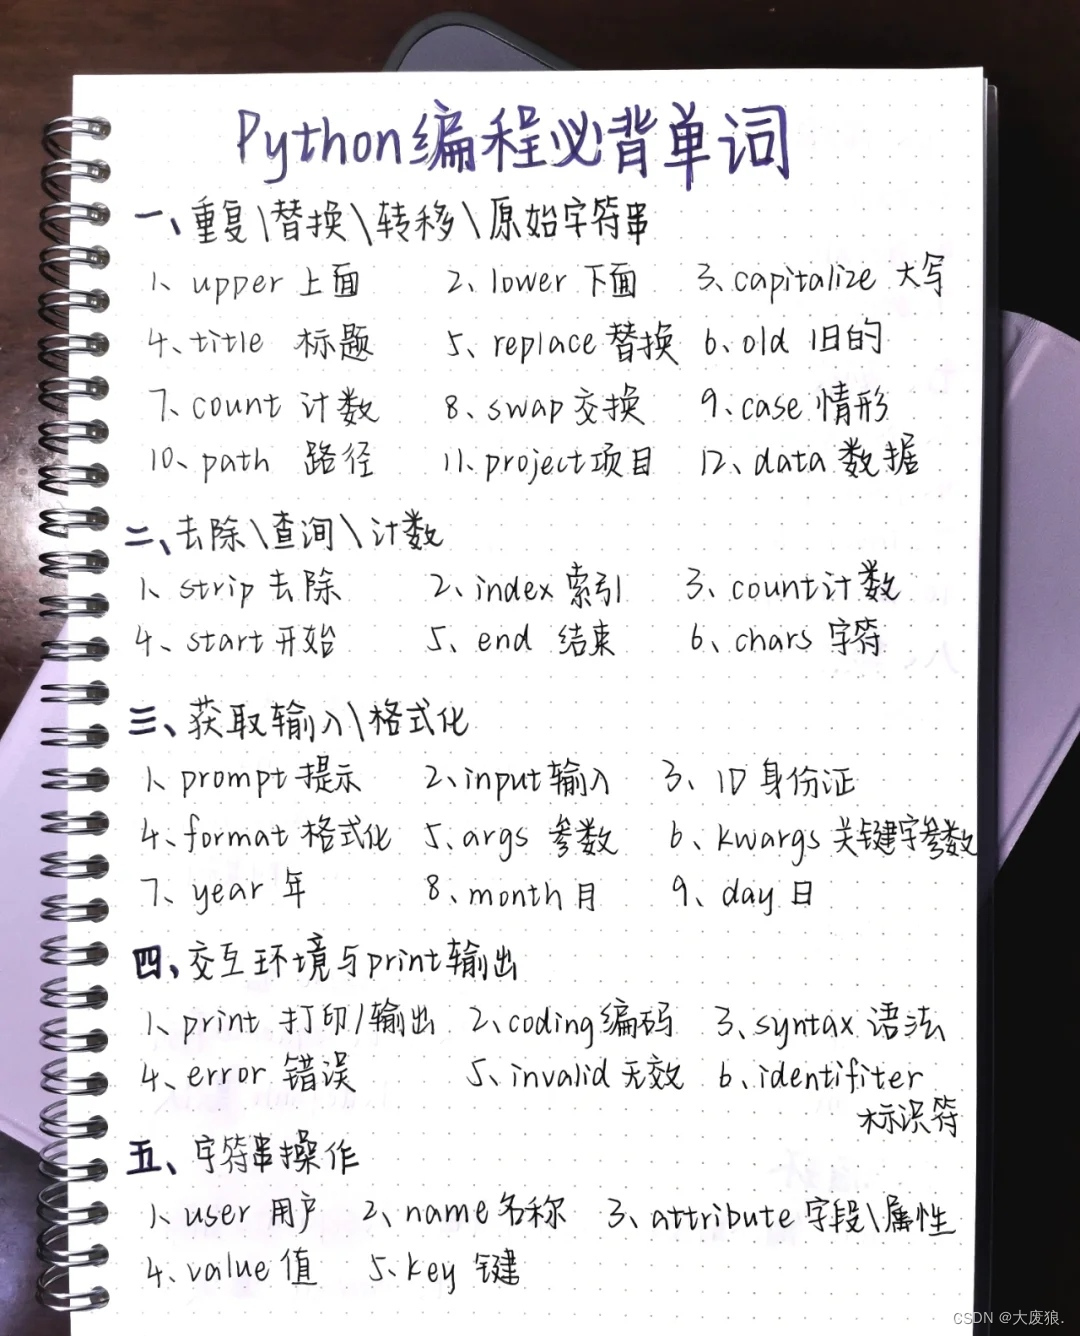 Python编程必背单词
一、重复\替换\转移\原始字符串
1、upper 上面 2、lower 下面 3、capitalize 大写
4、title 标题 5、replace 替换 6、old 旧的
7、count 计数 8、swap 交换 9、case 情形
10、path 路径 11、project 项目 12、data 数据
二、去除\查询\计数
1、strip 去除 2、index 索引 3、count 计数
4、start 开始 5、end 结束 6、chars 字符
三、获取输入\格式化
1、prompt 提示 2、input 输入 3、ID 身份证
4、format 格式化 5、args 参数 6、kwargs 关键字参数
7、year 年 8、month 月 9、day 日
四、交互环境与print输出
1、print 打印/输出 2、coding 编码 3、syntax 语法
4、error 错误 5、invalid 无效 6、identifiter
标识符
五、字符串操作
1、user 用户 2、name 名称 3、attribute 字段\属性
4、value 值 5、key 键
CSDN @大废狼.